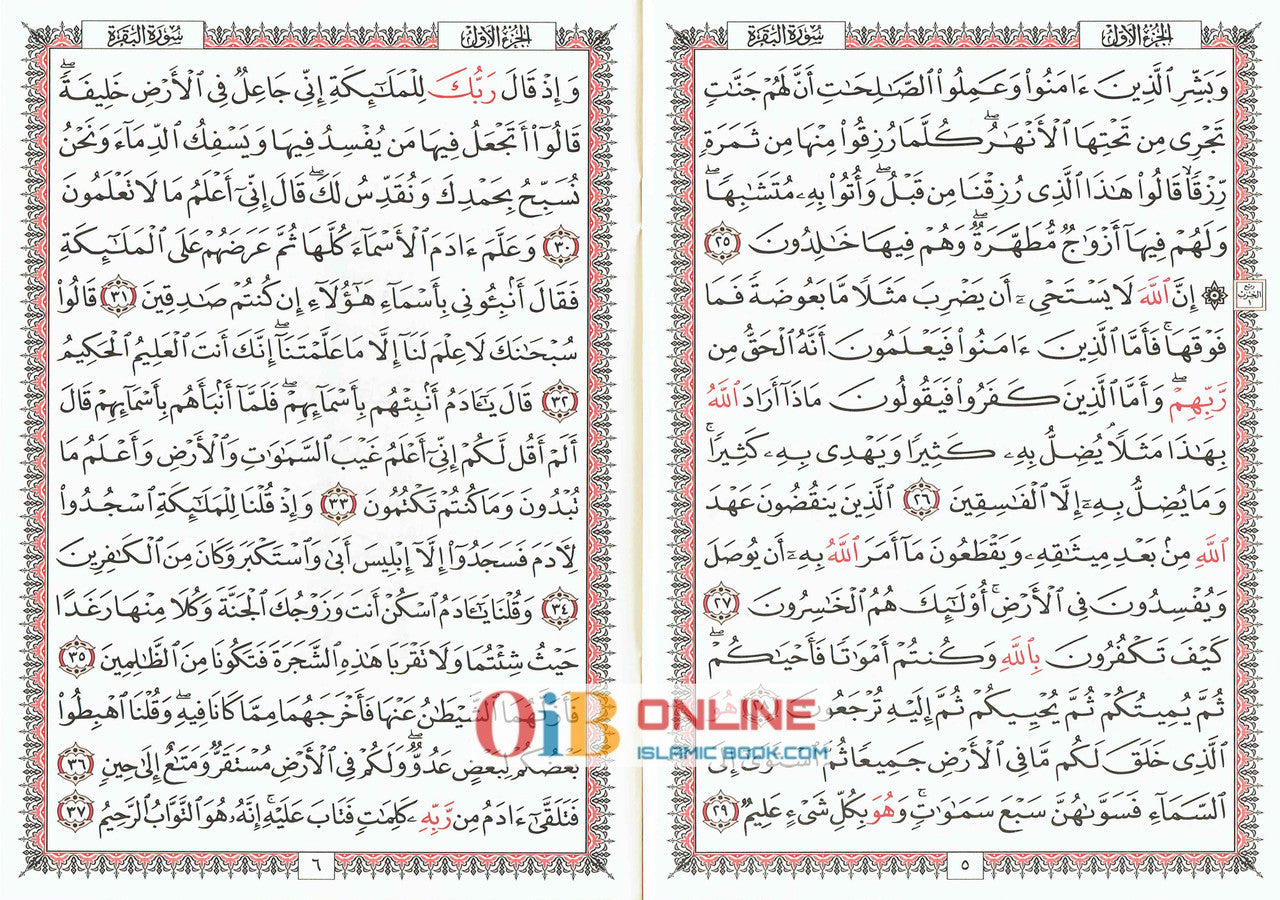 الجزء الأول
سورة البقرة
وَبَشِّرِ ٱلَّذِينَ ءَامَنُوا۟ وَعَمِلُوا۟ ٱلصَّـٰلِحَـٰتِ أَنَّ لَهُمْ جَنَّـٰتٍ
تَجْرِى مِن تَحْتِهَا ٱلْأَنْهَـٰرُ ۖ كُلَّمَا رُزِقُوا۟ مِنْهَا مِن ثَمَرَةٍ
رِّزْقًا ۙ قَالُوا۟ هَـٰذَا ٱلَّذِى رُزِقْنَا مِن قَبْلُ ۖ وَأُتُوا۟ بِهِۦ مُتَشَـٰبِهًا ۖ
وَلَهُمْ فِيهَآ أَزْوَٰجٌ مُّطَهَّرَةٌ ۖ وَهُمْ فِيهَا خَـٰلِدُونَ ٢٥
۞ إِنَّ ٱللَّهَ لَا يَسْتَحْىِۦٓ أَن يَضْرِبَ مَثَلًا مَّا بَعُوضَةً فَمَا
ربع الحزب ١
فَوْقَهَا ۚ فَأَمَّا ٱلَّذِينَ ءَامَنُوا۟ فَيَعْلَمُونَ أَنَّهُ ٱلْحَقُّ مِن
رَّبِّهِمْ ۖ وَأَمَّا ٱلَّذِينَ كَفَرُوا۟ فَيَقُولُونَ مَاذَآ أَرَادَ ٱللَّهُ
بِهَـٰذَا مَثَلًا ۘ يُضِلُّ بِهِۦ كَثِيرًا وَيَهْدِى بِهِۦ كَثِيرًا ۚ
وَمَا يُضِلُّ بِهِۦٓ إِلَّا ٱلْفَـٰسِقِينَ ٢٦ ٱلَّذِينَ يَنقُضُونَ عَهْدَ
ٱللَّهِ مِنۢ بَعْدِ مِيثَـٰقِهِۦ وَيَقْطَعُونَ مَآ أَمَرَ ٱللَّهُ بِهِۦٓ أَن يُوصَلَ
وَيُفْسِدُونَ فِى ٱلْأَرْضِ ۚ أُو۟لَـٰٓئِكَ هُمُ ٱلْخَـٰسِرُونَ ٢٧
كَيْفَ تَكْفُرُونَ بِٱللَّهِ وَكُنتُمْ أَمْوَٰتًا فَأَحْيَـٰكُمْ ۖ
ثُمَّ يُمِيتُكُمْ ثُمَّ يُحْيِيكُمْ ثُمَّ إِلَيْهِ تُرْجَعُونَ هُوَ
ٱلَّذِى خَلَقَ لَكُم مَّا فِى ٱلْأَرْضِ جَمِيعًا ثُمَّ ٱسْتَوَىٰٓ إِلَى
ٱلسَّمَآءِ فَسَوَّىٰهُنَّ سَبْعَ سَمَـٰوَٰتٍ ۚ وَهُوَ بِكُلِّ شَىْءٍ عَلِيمٌ ٢٩
٥
الجزء الأول
سورة البقرة
وَإِذْ قَالَ رَبُّكَ لِلْمَلَـٰٓئِكَةِ إِنِّى جَاعِلٌ فِى ٱلْأَرْضِ خَلِيفَةً ۖ
قَالُوٓا۟ أَتَجْعَلُ فِيهَا مَن يُفْسِدُ فِيهَا وَيَسْفِكُ ٱلدِّمَآءَ وَنَحْنُ
نُسَبِّحُ بِحَمْدِكَ وَنُقَدِّسُ لَكَ ۖ قَالَ إِنِّىٓ أَعْلَمُ مَا لَا تَعْلَمُونَ
٣٠ وَعَلَّمَ ءَادَمَ ٱلْأَسْمَآءَ كُلَّهَا ثُمَّ عَرَضَهُمْ عَلَى ٱلْمَلَـٰٓئِكَةِ
فَقَالَ أَنۢبِـُٔونِى بِأَسْمَآءِ هَـٰٓؤُلَآءِ إِن كُنتُمْ صَـٰدِقِينَ ٣١ قَالُوا۟
سُبْحَـٰنَكَ لَا عِلْمَ لَنَآ إِلَّا مَا عَلَّمْتَنَآ ۖ إِنَّكَ أَنتَ ٱلْعَلِيمُ ٱلْحَكِيمُ
٣٢ قَالَ يَـٰٓـَٔادَمُ أَنۢبِئْهُم بِأَسْمَآئِهِمْ ۖ فَلَمَّآ أَنۢبَأَهُم بِأَسْمَآئِهِمْ قَالَ
أَلَمْ أَقُل لَّكُمْ إِنِّىٓ أَعْلَمُ غَيْبَ ٱلسَّمَـٰوَٰتِ وَٱلْأَرْضِ وَأَعْلَمُ مَا
تُبْدُونَ وَمَا كُنتُمْ تَكْتُمُونَ ٣٣ وَإِذْ قُلْنَا لِلْمَلَـٰٓئِكَةِ ٱسْجُدُوا۟
لِـَٔادَمَ فَسَجَدُوٓا۟ إِلَّآ إِبْلِيسَ أَبَىٰ وَٱسْتَكْبَرَ وَكَانَ مِنَ ٱلْكَـٰفِرِينَ
٣٤ وَقُلْنَا يَـٰٓـَٔادَمُ ٱسْكُنْ أَنتَ وَزَوْجُكَ ٱلْجَنَّةَ وَكُلَا مِنْهَا رَغَدًا
حَيْثُ شِئْتُمَا وَلَا تَقْرَبَا هَـٰذِهِ ٱلشَّجَرَةَ فَتَكُونَا مِنَ ٱلظَّـٰلِمِينَ ٣٥
فَأَزَلَّهُمَا ٱلشَّيْطَـٰنُ عَنْهَا فَأَخْرَجَهُمَا مِمَّا كَانَا فِيهِ ۖ وَقُلْنَا ٱهْبِطُوا۟
بَعْضُكُمْ لِبَعْضٍ عَدُوٌّ ۖ وَلَكُمْ فِى ٱلْأَرْضِ مُسْتَقَرٌّ وَمَتَـٰعٌ إِلَىٰ حِينٍ ٣٦
فَتَلَقَّىٰٓ ءَادَمُ مِن رَّبِّهِۦ كَلِمَـٰتٍ فَتَابَ عَلَيْهِ ۚ إِنَّهُۥ هُوَ ٱلتَّوَّابُ ٱلرَّحِيمُ ٣٧
٦
OiB ONLINE
ISLAMIC BOOK.COM